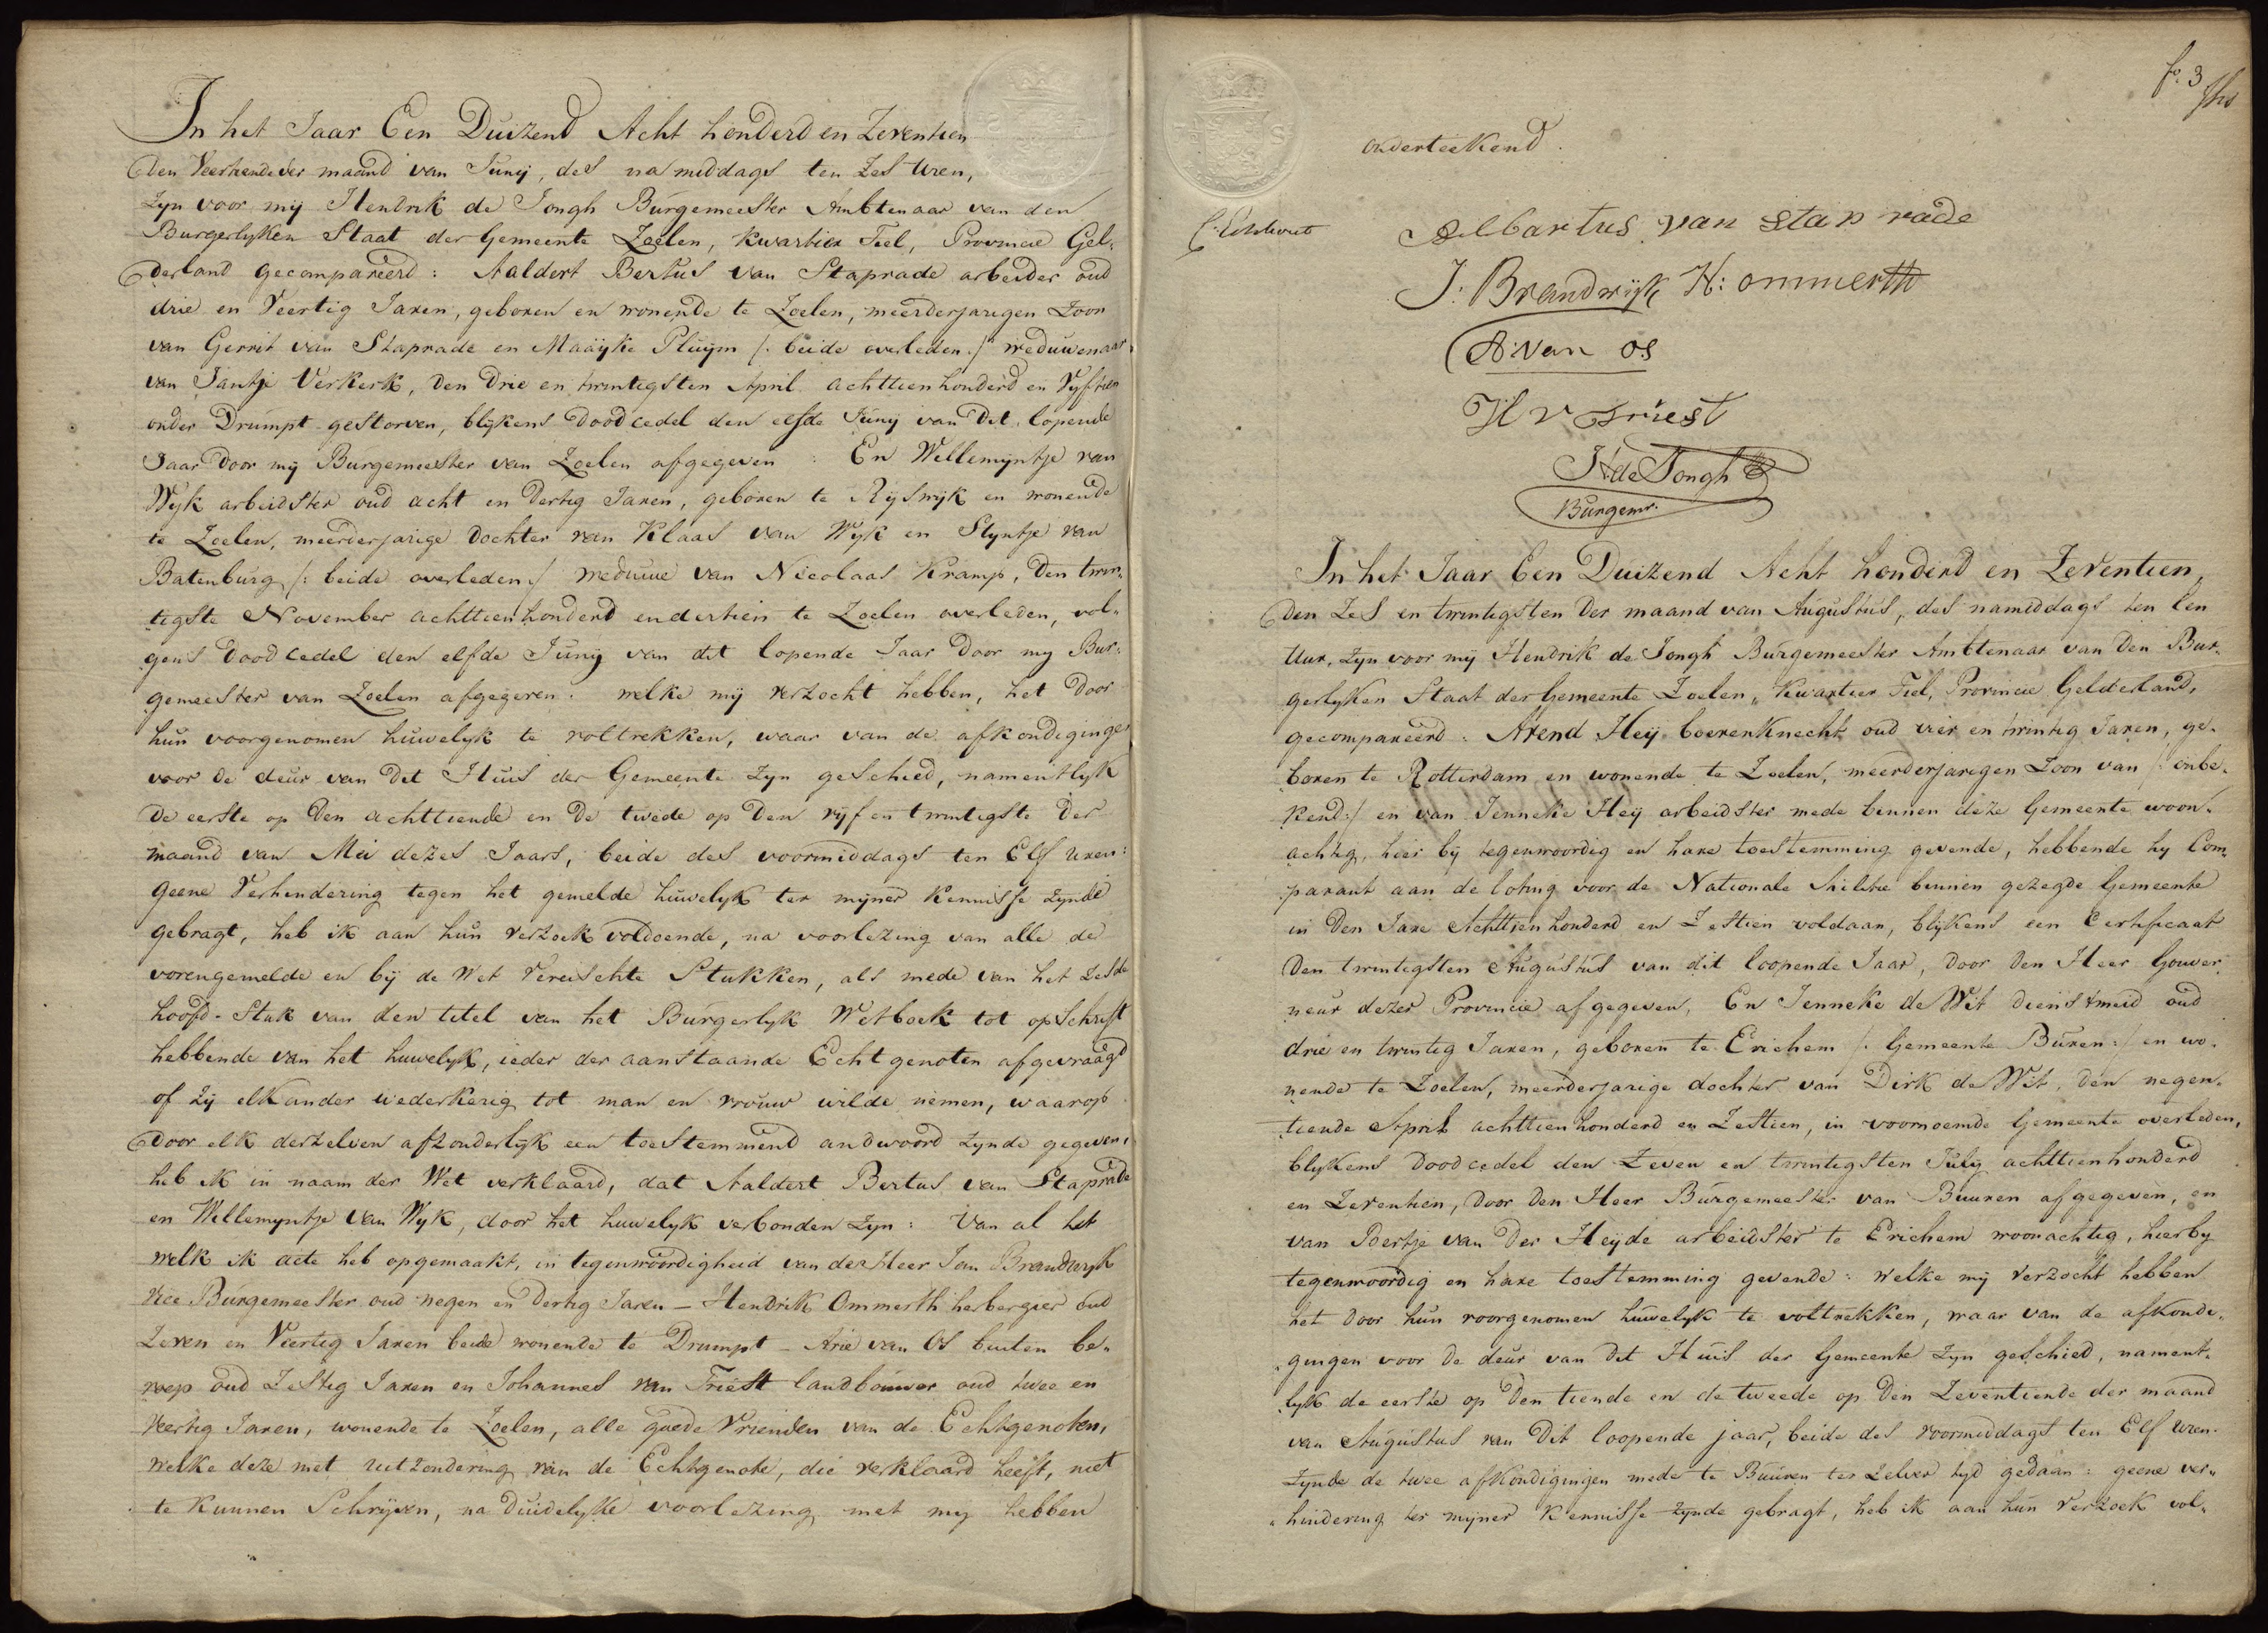 In het Jaar Een Duizend Acht honderd en Zeventien
den Veertiende der maand van Junij, des na middags ten Zes Uren,
Zyn voor mij Hendrik de Jongh Burgemeester Ambtenaar van den
Burgerlyken Staat der Gemeente Zoelen, Kwartier Tiel, Provincie Gel„
derland gecompareerd: Aaldert Bertus van Staprade arbeider oud
drie en Veertig Jaren, geboren en wonende te Zoelen, meerderjarigen Zoon
van Gerrit van Staprade en Maaijke Pluijm /: beide overleden :/ weduwenaar
van Jantje Verkerk, den Drie en twintigsten April achttienhonderd en Vyftien
onder Drumpt gestorven, blykens Doodcedel den elfde Junij van Dit lopende
Jaar Door mij Burgemeester van Zoelen afgegeven : En Willemyntje van
Wyk arbeidster oud acht en Dertig Jaren, geboren te Ryswyk en wonende
te Zoelen, meerderjarige dochter van Klaas van Wyk en Styntje van
Batenburg /: beide overleden :/ weduwe van Nicolaas Kramp, Den twin„
tigste November achttienhonderd en dertien te Zoelen overleden, vol„
gens Doodcedel den elfde Junij van dit lopende Jaar Door my Bur„
gemeester van Zoelen afgegeven : welke mij verzocht hebben, het Door
hun voorgenomen huwelyk te voltrekken, waar van de afkondigingen
voor de deur van Dit Huis der Gemeente Zyn geschied, namentlyk
De eerste op Den achttiende en De twede op Den vyf en twintigste Der
maand van Mei dezes Jaars, beide des voormiddags ten Elf Uren:
geene Verhindering tegen het gemelde huwelyk ter myner Kennisse Zynde
gebragt, heb ik aan hun verzoek voldoende, na voorlezing van alle de
vorengemelde en bij de Wet Vereischte Stukken, als mede van het Zesde
hoofd-Stuk van den titel van het Burgerlyk Wetboek tot opschrift
hebbende van het huwelyk, ieder der aanstaande Echtgenoten afgevraagd
of Zij elkander wederkerig tot man en vrouw wilde nemen, waarop
Door elk derzelven afzonderlyk een toestemmend andwoord Zynde gegeven,
heb ik in naam der Wet verklaard, dat Aaldert Bertus van Staprade
en Willemyntje van Wyk, door het huwelyk verbonden Zyn : Van al het
welk ik acte heb opgemaakt, in tegenwoordigheid van der Heer Jan Brandwyk
Vice Burgemeester oud negen en Dertig Jaren – Hendrik Ommerth herbergier oud
Zeven en Veertig Jaren beide wonende te Drumpt – Arie van Os buiten be„
roep oud Zestig Jaren en Johannes van Triest landbouwer oud twee en
Veertig Jaren, wonende te Zoelen, alle goede Vrienden van de Echtgenoten,
welke deze met uitzondering van de Echtgenote, die verklaard heeft, niet
te kunnen Schryven, na Duidelyke voorlezing met my hebben
fo. 3
onderteekend.
Aelbartus van stap rade
J: Brandwijk H: ommerth
A: van os
H v Triest
H de Jongh
Burgemr.
In het Jaar Een Duizend Acht honderd en Zeventien,
den Zes en twintigsten Der maand van Augustus, des namiddags ten Een
Uur, Zyn voor mij Hendrik de Jongh Burgemeester Ambtenaar van Den Bur„
gerlyken Staat der Gemeente Zoelen, Kwartier Tiel, Provincie Gelderland,
gecompareerd : Arend Heij boerenknecht oud vier en twintig Jaren, ge„
boren te Rotterdam en wonende te Zoelen, meerderjarigen Zoon van /: onbe„
kend :/ en van Jenneke Heij arbeidster mede binnen deze Gemeente woon„
achtig, hier bij tegenwoordig en hare toestemming gevende, hebbende hy Com„
parant aan de loting voor de Nationale Militie binnen gezegde Gemeente
in Den Jare Achttienhonderd en Zestien voldaan, blykens een Certificaat
Den twintigsten Augustus van dit loopende Jaar, door Den Heer Gouver„
neur dezer Provincie afgegeven, En Jenneke de Wit dienstmeid oud
drie en twintig Jaren, geboren te Erichem /: Gemeente Buren :/ en wo„
nende te Zoelen, meerderjarige dochter van Dirk de Wit, den negen„
tiende April achttienhonderd en Zestien, in voornoemde Gemeente overleden,
blykens Doodcedel den Zeven en twintigsten July achttienhonderd
en Zeventien, Door Den Heer Burgemeester van Buuren afgegeven, en
van Deertje van Der Heijde arbeidster te Erichem woonachtig, hierby
tegenwoordig en hare toestemming gevende : welke mij verzocht hebben
het Door hun voorgenomen huwelyk te voltrekken, waar van de afkondi„
gingen voor de deur van Dit Huis der Gemeente Zyn geschied, nament„
lyk de eerste op Den tiende en de tweede op Den Zeventiende der maand
van Augustus van Dit loopende jaar, beide des voormiddags ten Elf Uren.
Zynde de twee afkondigingen mede te Buuren ter Zelver tyd gedaan : geene ver„
hindering ter myner Kennisse Zynde gebragt, heb ik aan hun Verzoek vol„